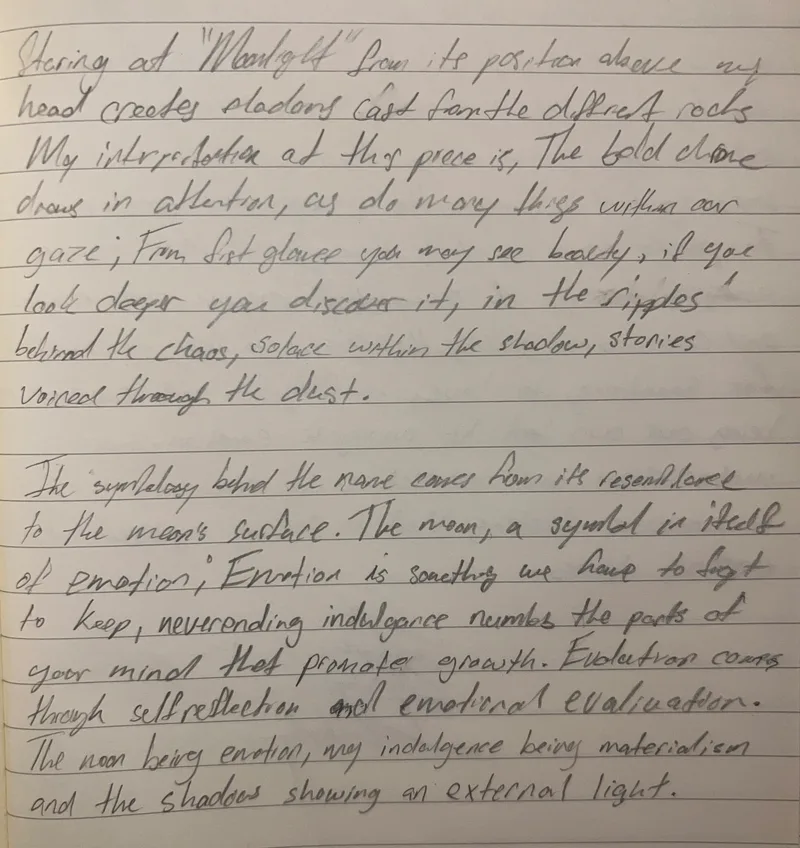 Staring at "Moonlight" from its position above my
head creates shadows cast from the diffrent rocks
My intrpretation at this piece is, The bold chrome
draws in attention, as do many things within our
gaze; From first glance you may see beauty, if you
look deeper you discover it, in the ripples
behind the chaos, solace within the shadow, stories
voiced through the dust.
The symbology behind the name comes from its resemblance
to the moon's surface. The moon, a symbol in itself
of emotion; Emotion is something we have to fight
to keep, neverending indulgance numbs the parts of
your mind that promote growth. Evolution comes
through self reflection and emotional evaluation.
The moon being emotion, my indulgence being materialism
and the shadows showing an external light.